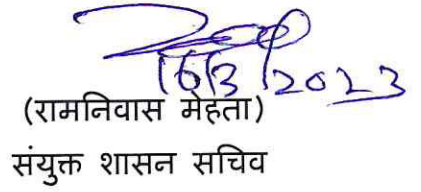 16/3/2023
(रामनिवास मेहता)
संयुक्त शासन सचिव